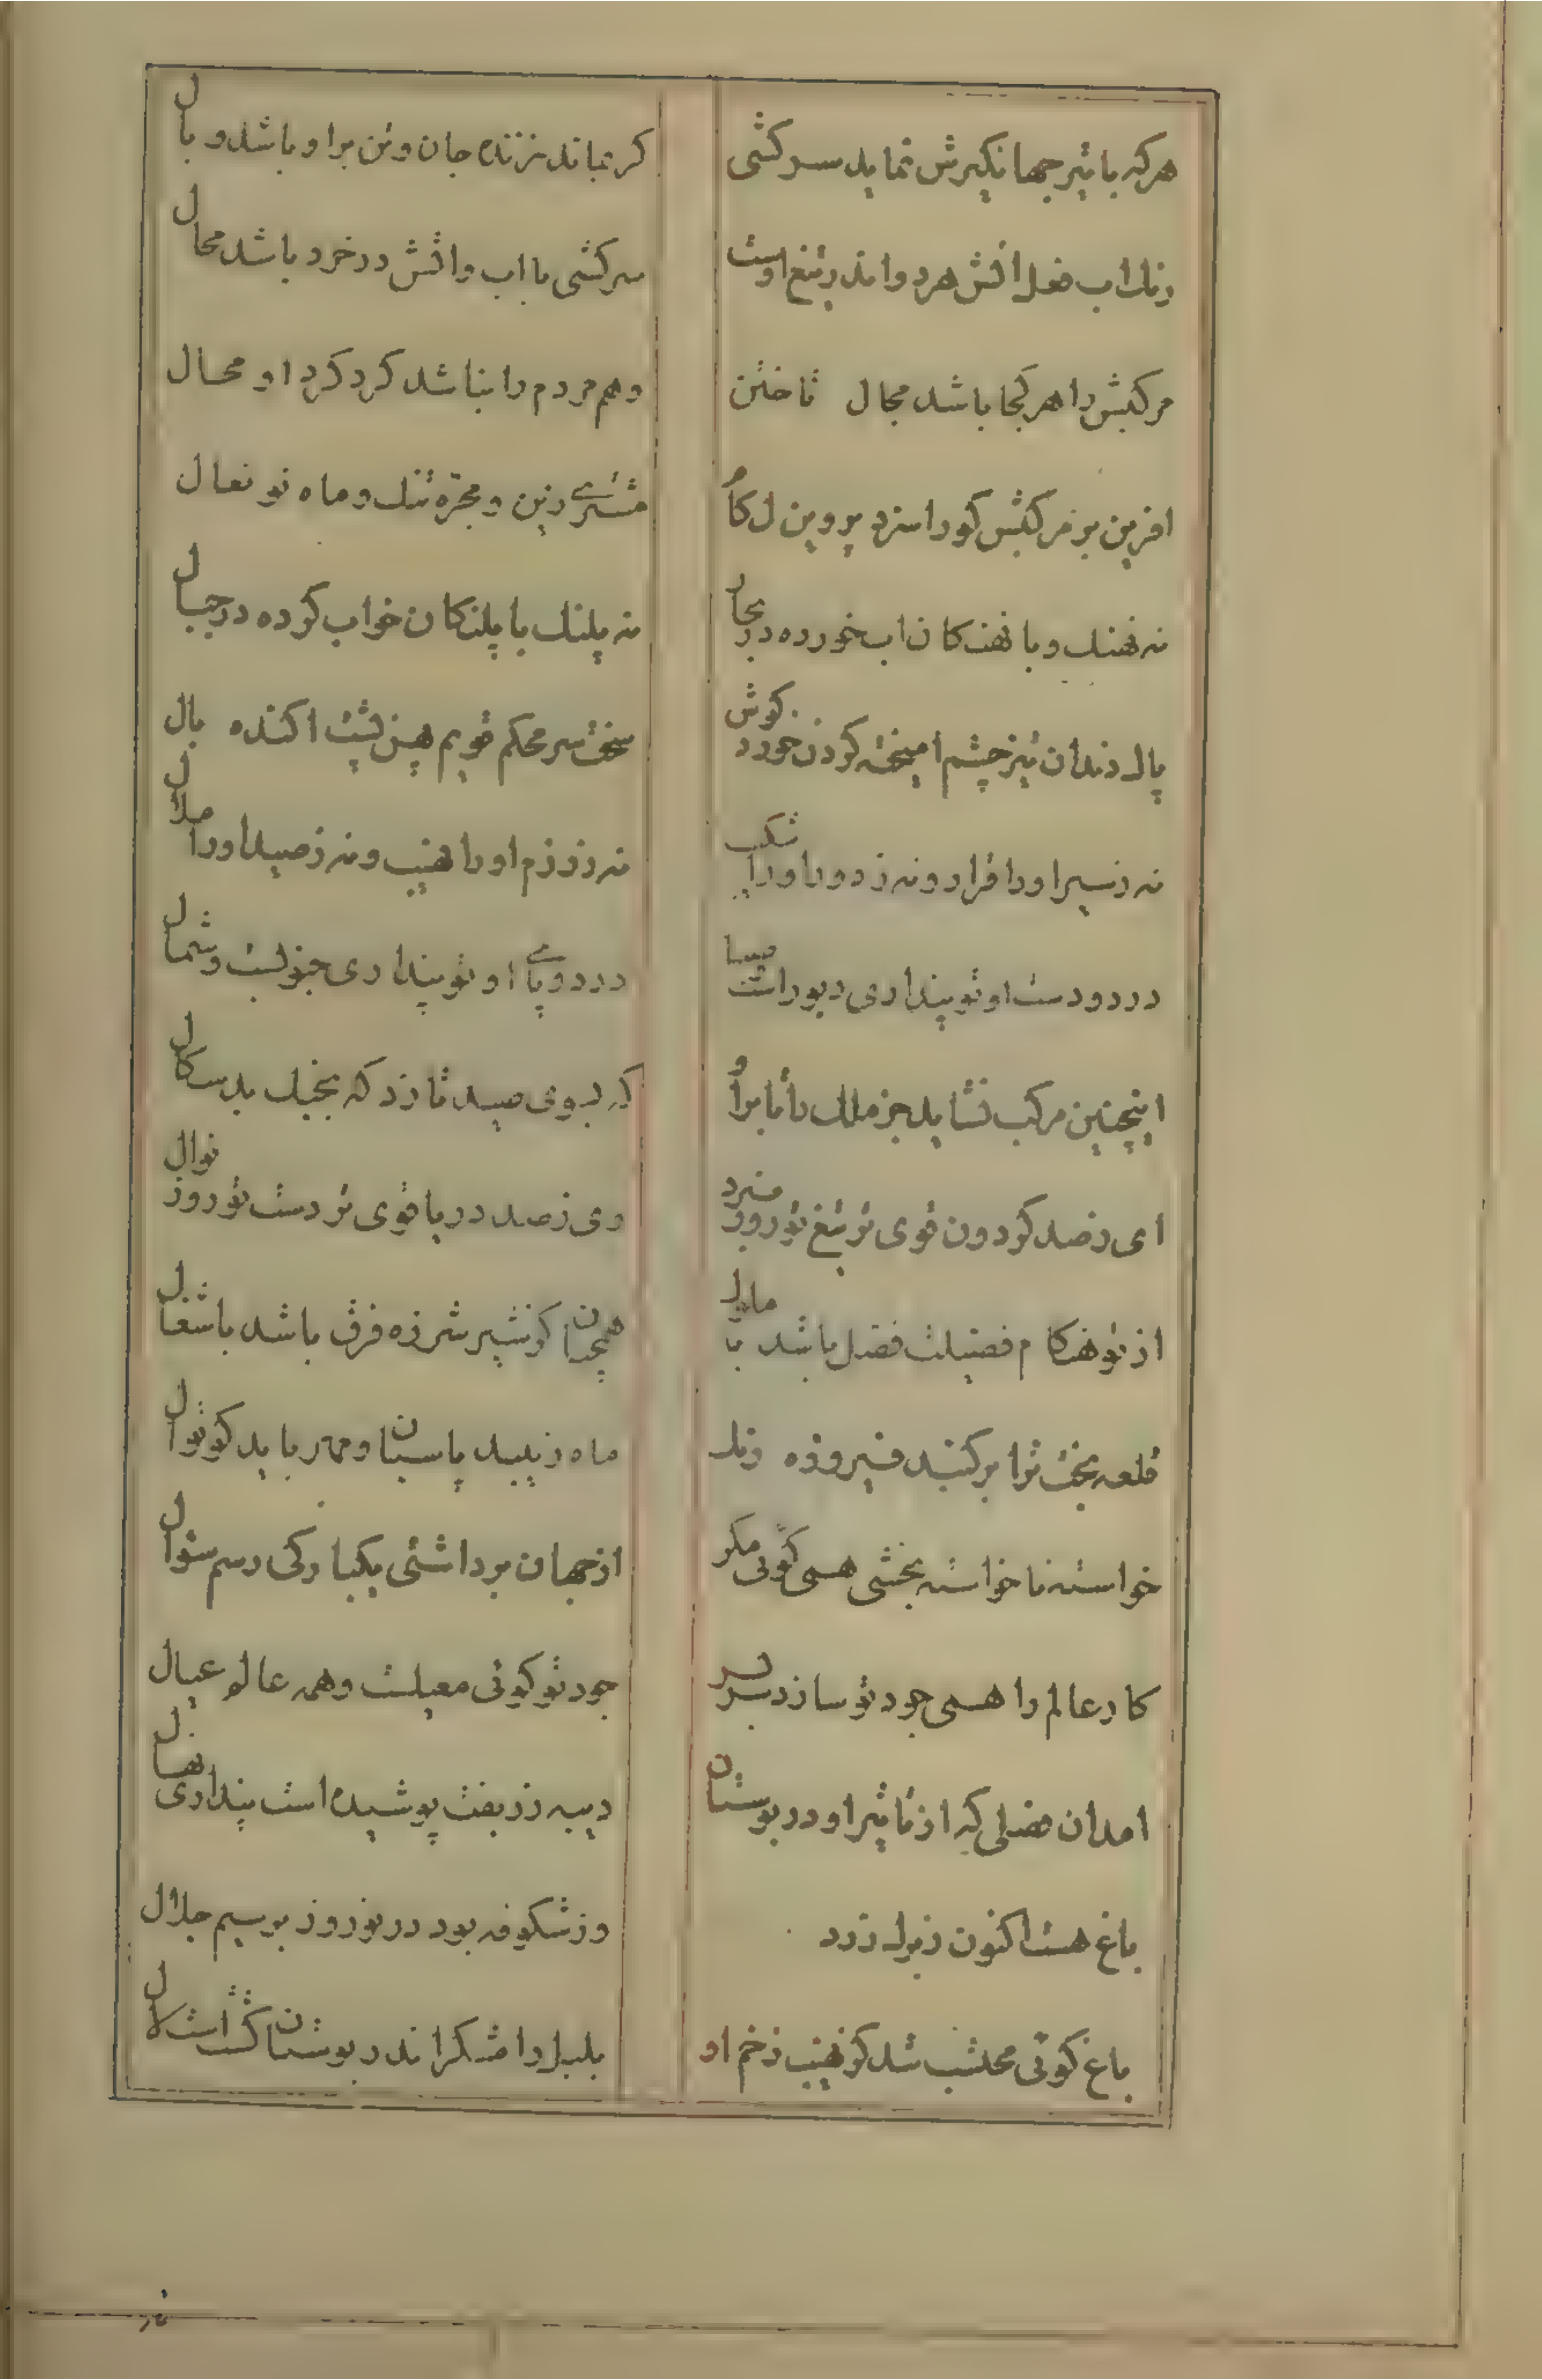 هرکه با تیر جهانکیرش نماید سرکشی
کر بماند زنده جان و تن برا و باشد و بال
زنك اب فعل اتش هر دو اندر تیغ اوست
سرکشی با اب و اتش در خرد باشد محال
مرکبش را هر کجا باشد مجال تاختن
وهم مردم را نباشد کرد کرد او محال
افرین بر مرکبش کورا سزد پروین لکام
مشتری زین و مجره تنك و ماه نو نعال
نه نهنك و با نهنکان اب خورده در بحال
نه پلنك با پلنکان خواب کرده در جبال
پاك دندان تیز چشم امیخته کردن خورد کوش
سخت سر محکم قویم پهن پشت اکنده یال
نه ز سیر اورا قرار و نه ز دور اورا شکیب
نه ز رزم اورا نهیب و نه ز صید اورا ملال
در دو دست او تو پنداری دبور است صبا
در دو پای او تو پنداری جنوبست و شمال
اینچنین مرکب نشاید جز ملك را تا برا و
که بسوی صید تازد که بخیل بد سکال
ای ز صد کردون قوی تر تیغ تو روز نبرد
وی ز صد دریا قوی تر دست تو روز نوال
از تو هنکام فضیلت فضل باشد تا
همچنان کز شیر شرزه فرق باشد با شغال
قلعه بخت ترا بر کنبد فیروزه رنك
ماه زیبد پاسبان و مهر باید کوتوال
خواسته ناخواسته بخشی همی کوئی مکر
از جهان برداشتی یکبارکی رسم سئوال
کار عالم را همی جود تو سازد سر بسر
جود تو کوئی معیلست و همه عالم عیال
امد ان فصلی که از تاثیر او در بوستان
دیبه زربفت پوشیده است پنداری نهال
باغ هست اکنون زبرك زرد
وز شکوفه بود در نوروز بر سیم حلال
باغ کوئی محتسب شد کز نهیب زخم او
بلبل رامشکر اندر بوستان کشته است لال